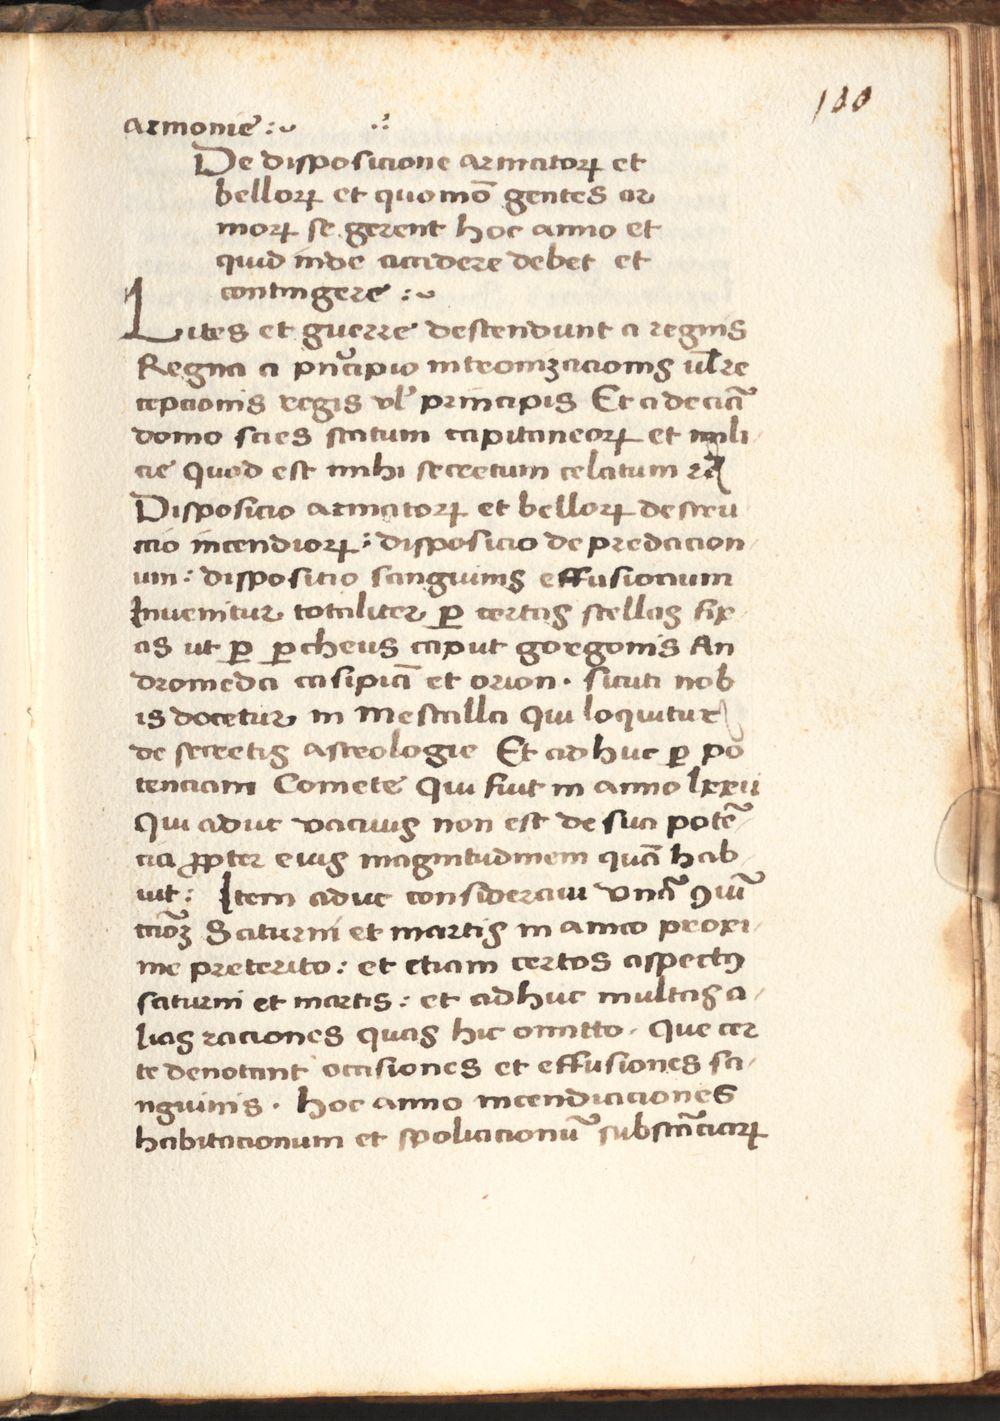 100
armonie :~ ∴
De disposicione armatoꝝ et
belloꝝ et quomō gentes ar
moꝝ se gerent hoc anno et
quid inde accidere debet et
contingere :~
Lites et guerre descendunt a regnis
Regna a principio intronizacionis ul re
cepcionis regis vl' principis Et a deciā
domo scies statum capitaneoꝝ et mili
cie quod est mihi secretum celatum rc̄
Disposicio armatoꝝ et belloꝝ destru
ctio incendioꝝ : disposicio depredacion
um : dispositio sanguinis effusionum
Invenitur totaliter ꝑ certas stellas fix
as ut ꝑ ꝑcheus caput gorgonis An
dromeda casipiā et orion . sicuti nob
is docetur in Mescalla Qui loquitur
de secretis astrologie Et adhuc ꝑ po
tenciam Comete Qui fuit in anno lxxii
Qui aduc vacuus non est de sua potē
cia ꝓpter eius magnitudinem quā hab
uit : Item aduc consideraui vnā ꝯiū
ctiōꝫ Saturni et martis in anno proxi
me preterito : et etiam certos aspectꝰ
saturni et martis : et adhuc multas a
lias raciones quas hic omitto . Que cer
te denotant occisiones et effusiones sa
nguinis . hoc anno incendiaciones
habitacionum et spoliacionū substāciaꝝ